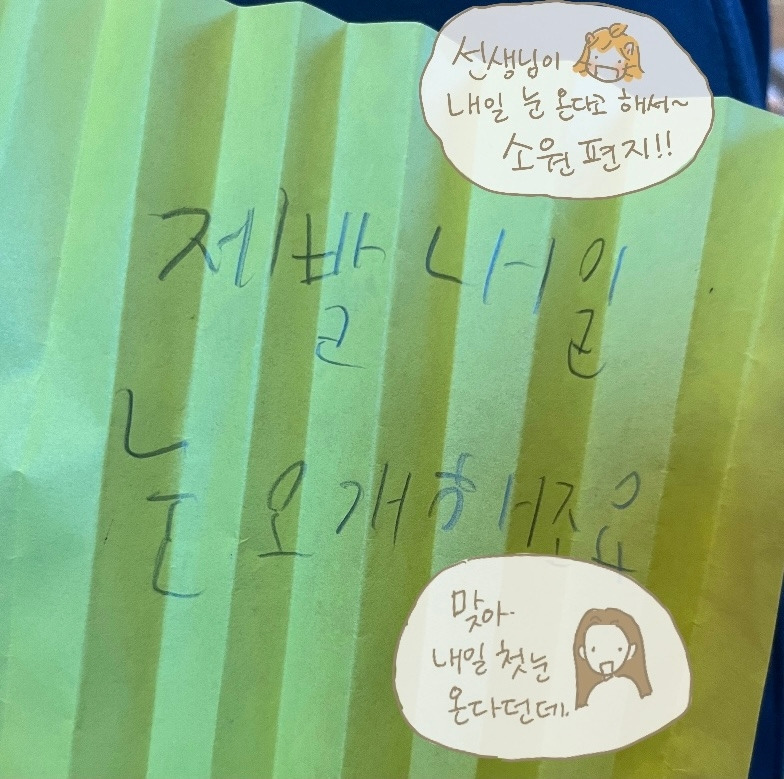 선생님이
내일 눈 온다고 해서~
소원 편지!!
제발 내일
눈 오개해조요
맞아.
내일 첫눈
온다던데.